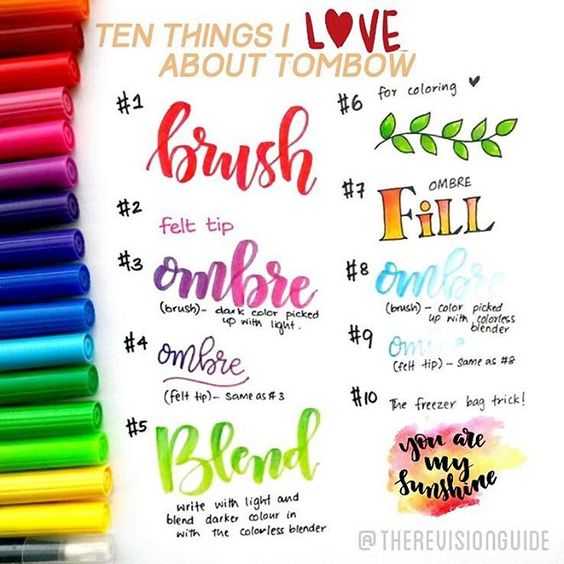 TEN THINGS I LOVE
ABOUT TOMBOW
#1
brush
#2
felt tip
#3
ombre
(brush) - dark color picked
up with light.
#4
ombre
(felt tip) - same as #3
#5
Blend
write with light and
blend darker colour in
with the colorless blender
#6
for coloring
#7
OMBRE
FiLL
#8
ombre
(brush) - color picked
up with colorless
blender
#9
ombre
(felt tip) - same as #8
#10
The freezer bag trick!
you are
my
sunshine
@THEREVISIONGUIDE